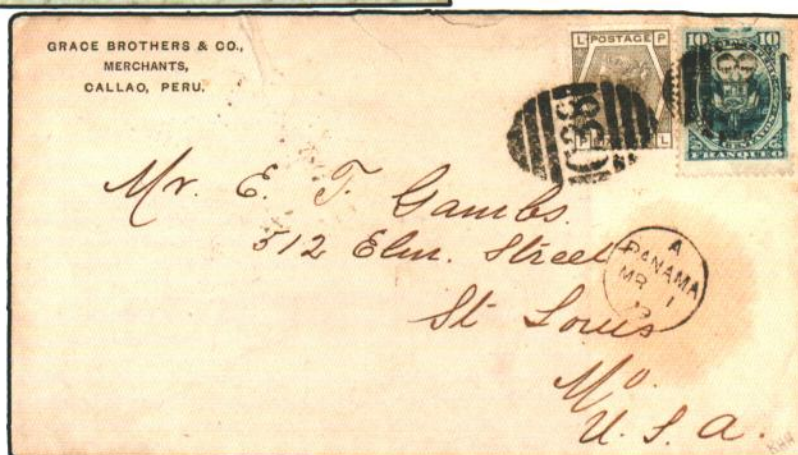 GRACE BROTHERS & CO.,
MERCHANTS,
CALLAO, PERU.
L POSTAGE P
P L
10 10
FRANQUEO
C38
Mr. E. F. Gambs.
512 Elm. Street
St Louis
Mo.
U. S. A.
A
PANAMA
MR 1